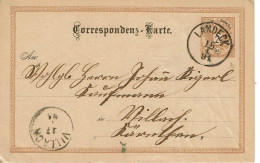 Correspondenz-Karte.
LANDECK
15
84
An
Wohlgb. Herrn Johann
Kaufmann
in Villach.
Kärnthen.
VILLACH
17
84